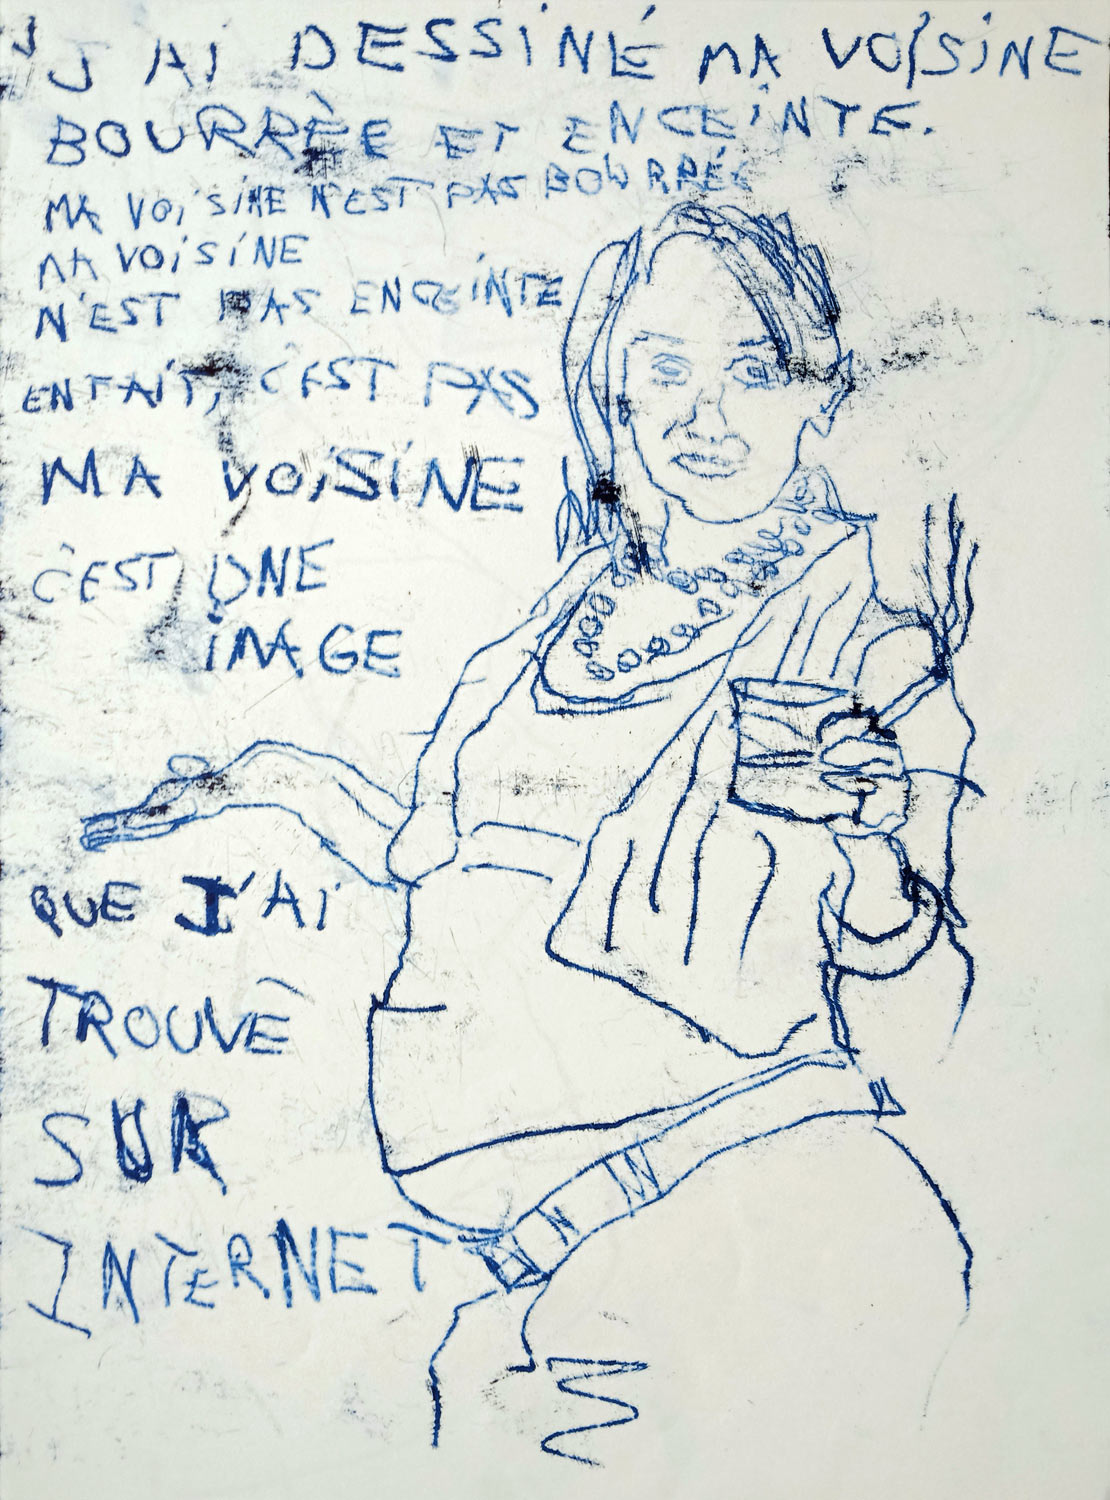 J'AI DESSINÉ MA VOISINE
BOURRÈE ET ENCEINTE.
MA VOISINE N'EST PAS BOURRÉE
MA VOISINE
N'EST PAS ENCEINTE
EN FAIT, C'EST PAS
MA VOISINE
C'EST UNE
IMAGE
QUE J'AI
TROUVÈ
SUR
INTERNET